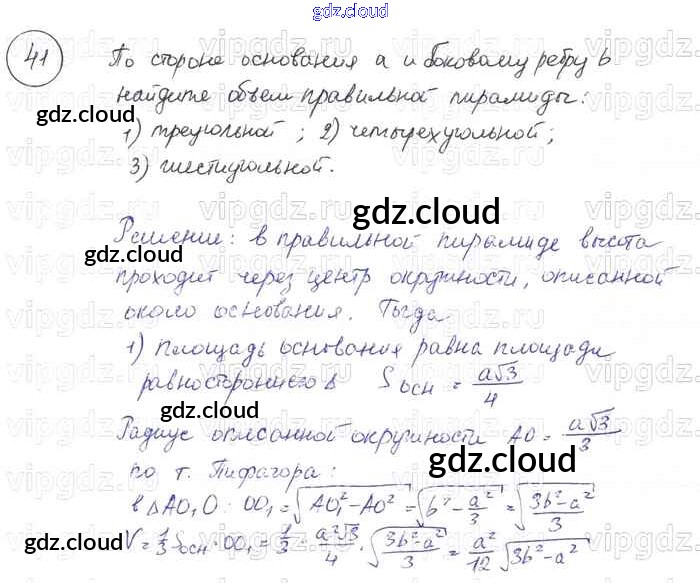 gdz.cloud
41 По стороне основания a и боковому ребру b
найдите объем правильной пирамиды:
gdz.cloud
1) треугольной; 2) четырехугольной;
3) шестиугольной.
gdz.cloud
Решение: в правильной пирамиде высота
gdz.cloud
проходит через центр окружности, описанной
около основания. Тогда
1) площадь основания равна площади
равностороннего Δ Sосн = a√3/4
gdz.cloud
Радиус описанной окружности AO = a√3/3
gdz.cloud
по т. Пифагора:
в ΔAO₁O: OO₁ = √(AO₁² - AO²) = √(b² - a²/3) = √((3b² - a²)/3)
gdz.cloud
V = 1/3 Sосн · OO₁ = 1/3 · a²√3/4 · √((3b² - a²)/3) = a²/12 √(3b² - a²)